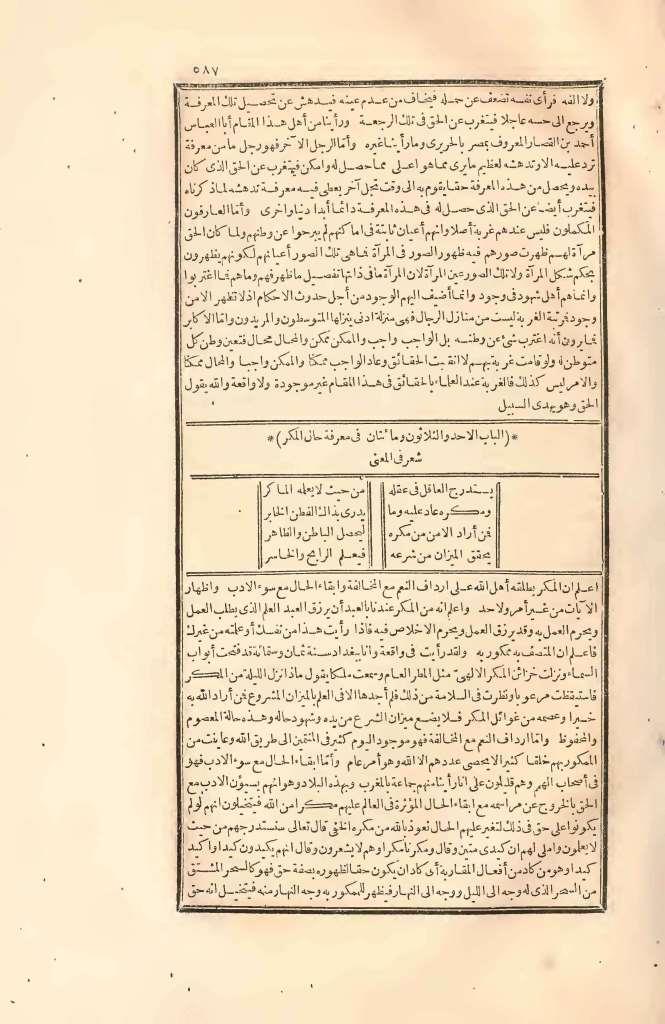 ٥٨٧
ولا الفه فرأى نفسه تضعف عن حمله فيخاف من عدم عينه فيدهش عن تحصيل تلك المعرفة
ويرجع الى حسه عاجلا فيتغرب عن الحق فى تلك الرجعة ورأينا من أهل هذا المقام أبا العباس
أحمد بن القصار المعروف بمصر بالحريرى وما رأينا غيره وأما الرجل الآخر فهو رجل ما من معرفة
ترد عليه الا وتدهشه لعظيم ما يرى مما هو اعلى مما حصل له وامكن فيتغرب عن الحق الذى كان
بيده ويحصل من هذه المعرفة حقا يقوم به الى وقت تجل آخر يعطى فيه معرفة تدهشه لما ذكرناه
فيتغرب أيضا عن الحق الذى حصل له فى هذه المعرفة دائما أبدا دنيا واخرى وأما العارفون
المكملون فليس عندهم غربة أصلا وانهم أعيان ثابتة فى اماكنهم لم يبرحوا عن وطنهم ولما كان الحق
مرآة لهم ظهرت صورهم فيه ظهور الصور فى المرآة فما هى تلك الصور أعيانهم لكونهم يظهرون
بحكم شكل المرآة ولا تلك الصور عين المرآة لان المرآة ما فى ذاتها تفصيل ما ظهر فهم وما هم فما اغتربوا
وانما هم أهل شهود فى وجود وانما أضيف اليهم الوجود من أجل حدوث الاحكام اذ لا تظهر الا من
وجود فمرتبة الغربة ليست من منازل الرجال فهى منزلة أدنى ينزلها المتوسطون والمريدون وأما الاكابر
فما يرون أنه اغترب شئ عن وطنه بل الواجب واجب والممكن ممكن والمحال محال فتعين وطن كل
متوطن له ولو قامت غربة بهم لانقلبت الحقائق وعاد الواجب ممكنا والممكن واجبا والمحال ممكنا
والامر ليس كذلك فالغربة عند العلماء بالحقائق فى هذا المقام غير موجودة ولا واقعة والله يقول
الحق وهو يهدى السبيل
*(الباب الاحد والثلاثون ومائتان فى معرفة حال المكر)*
شعر فى المعنى
يستدرج العاقل فى عقله من حيث لا يعلمه الماكر
ومكره عاد عليه وما يدرى بذاك الفطن الخابر
فمن أراد الامن من مكره ليحصل الباطن والظاهر
يحقق الميزان من شرعه فيعلم الرابح والخاسر
اعلم ان المكر يطلقه أهل الله على ارداف النعم مع المخالفة وابقاء الحال مع سوء الادب واظهار
الآيات من غير أمر ولا حد واعلم انه من المكر عندنا بالعبد أن يرزق العبد العلم الذى يطلب العمل
ويحرم العمل به وقد يرزق العمل ويحرم الاخلاص فيه فاذا رأيت هذا من نفسك أو علمته من غيرك
فاعلم ان المتصف به ممكور به ولقد رأيت فى واقعة وانا ببغداد سنة ثمان وستمائة قد فتحت أبواب
السماء ونزلت خزائن المكر الالهىّ مثل المطر العام وسمعت ملكا يقول ماذا نزل الليلة من المكر
فاستيقظت مرعوبا ونظرت فى السلامة من ذلك فلم أجدها الا فى العلم بالميزان المشروع فمن أراد الله به
خيرا وعصمه من غوائل المكر فلا يضع ميزان الشرع من يده وشهود حاله وهذه حالة المعصوم
والمحفوظ وأما ارداف النعم مع المخالفة فهو موجود اليوم كثير فى المنتمين الى طريق الله وعاينت من
الممكور بهم خلقا كثيرا لا يحصى عددهم الا الله وهو أمر عام وأما ابقاء الحال مع سوء الادب فهو
فى أصحاب الهمم وهم قليلون على انا رأينا منهم جماعة بالمغرب وبهذه البلاد وهو انهم يسيؤن الادب مع
الحق بالخروج عن مراسمه مع ابقاء الحال المؤثرة فى العالم عليهم مكرا من الله فيتخيلون انهم لو لم
يكونوا على حق فى ذلك لتغير عليهم الحال نعوذ بالله من مكره الخفى قال تعالى سنستدرجهم من حيث
لا يعلمون واملى لهم ان كيدى متين وقال ومكرنا مكرا وهم لا يشعرون وقال انهم يكيدون كيدا واكيد
كيدا وهو من كاد من أفعال المقاربة أى كاد ان يكون حقا لظهوره بصفة حق فهو كالسحر المشتق
من السحر الذى له وجه الى الليل ووجه الى النهار فيظهر للممكور به وجه النهار منه فيتخيل انه حق